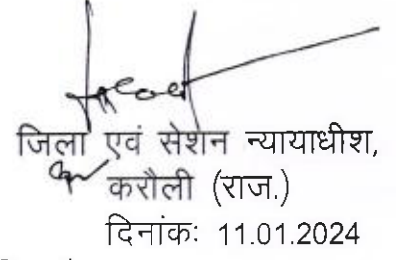 जिला एवं सेशन न्यायाधीश,
करौली (राज.)
दिनांकः 11.01.2024